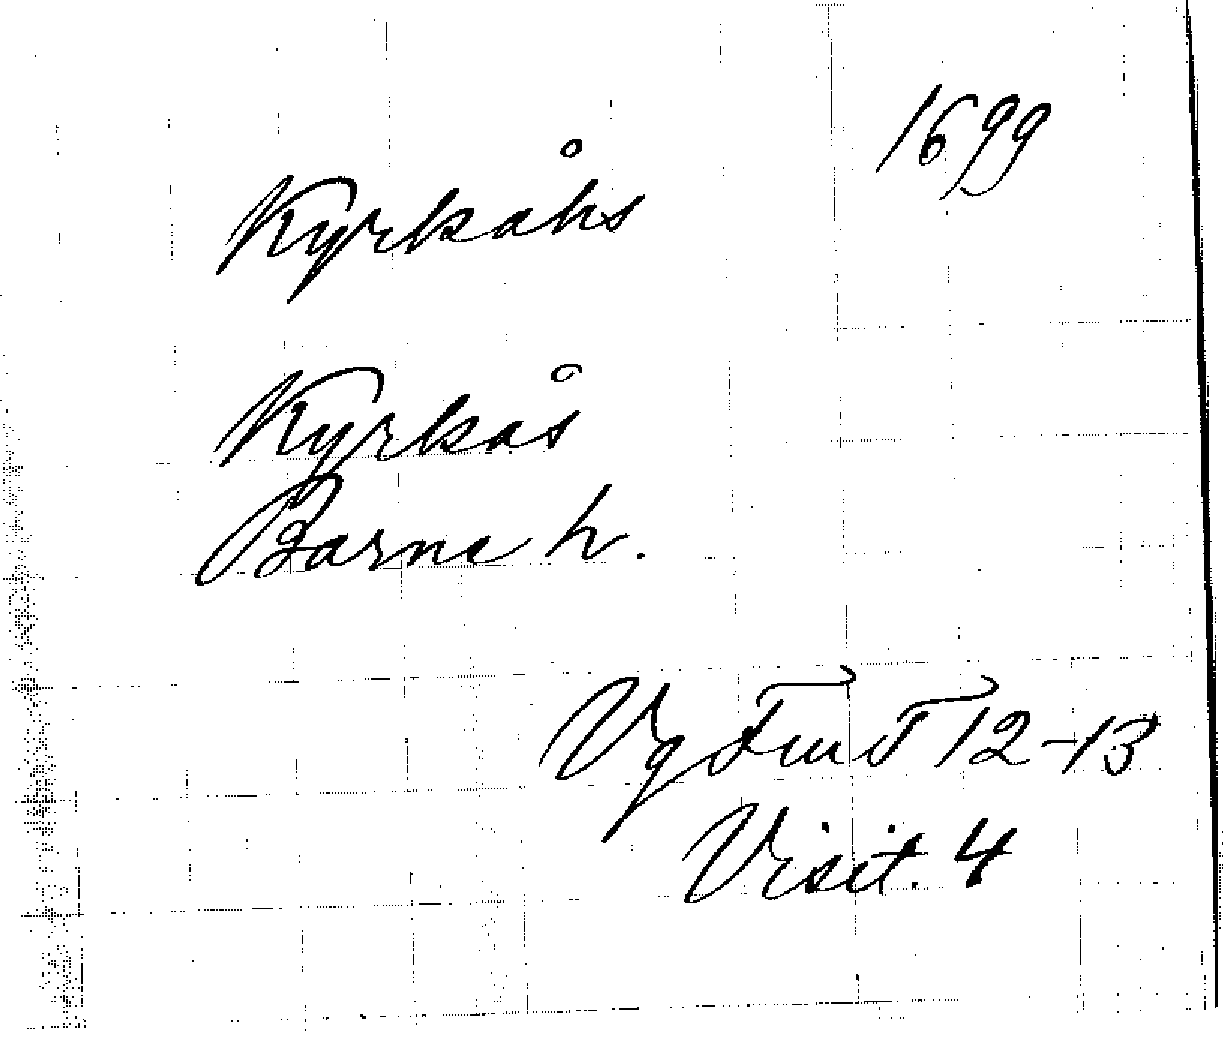 1699
Kyrkåhs
Kyrkås
Barne h.
Vg FmT 12-13
Visit. 4